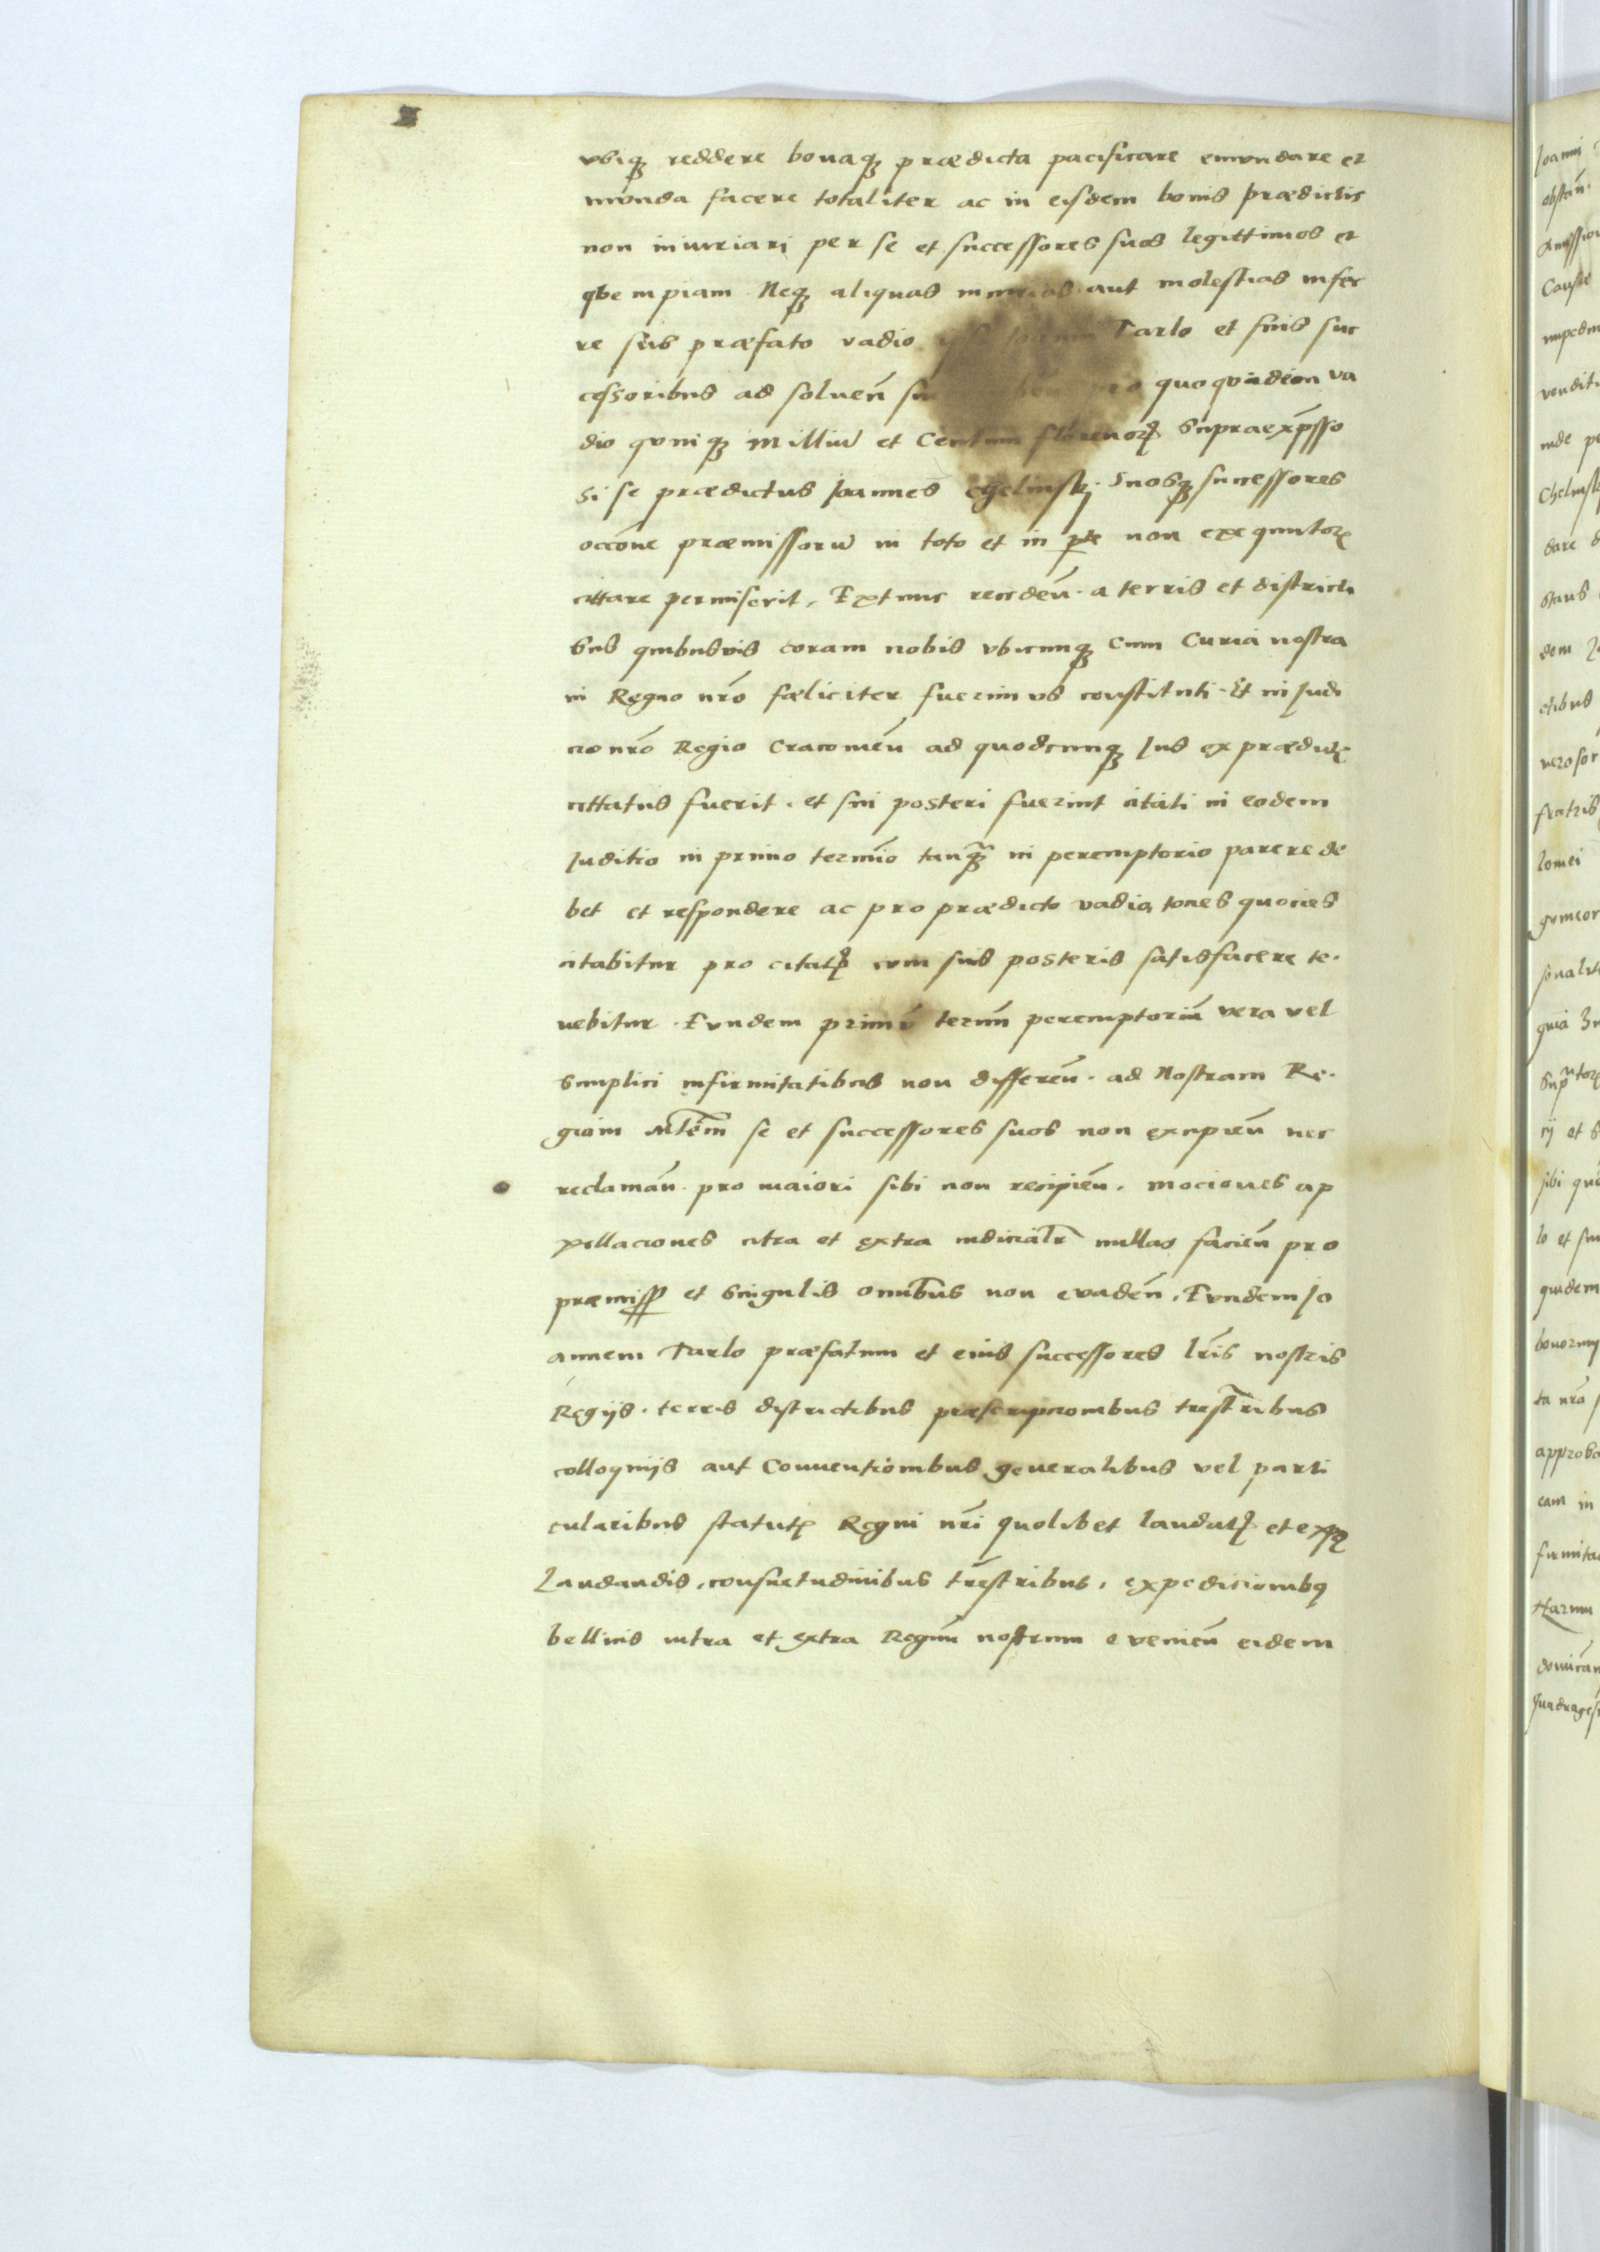 vbiq₃ reddere bonaq₃ prædicta pacificare emundare et
munda facere totaliter ac in eisdem bonis prædictis
non iniuriari per se et successores suos legittimos et
quempiam Neq₃ aliquas iniurias aut molestias infer
re sub præfato vadio ipsi Ioanni Tarlo et suis suc
cessoribus ad soluen̄ quo quidem va
dio quinq₃ Milliū et Centum florenorꝝ supraexp̄sso
si se prædictus Joannes Chelmsky suosq₃ successores
occōne præmissorū in toto et in pte non exequutorꝝ
cittare permiserit, Extunc receden̄. a terris et districti
bus quibusuis coram nobis vbicunq₃ cum Curia nostra
in Regno nr̄o fæliciter fuerimus constituti. Et in Judi
cio nr̄o Regio Cracouien̄ ad quodcunq₃ Ius ex prædictꝭ
cittatus fuerit. et sui posteri fuerint citati in eodem
Juditio in primo termīo tanq₃ in peremptorio parere de
bet et respondere ac pro prædicto vadio tones quocies
citabitur pro citatꝭ cum suis posteris satisfacere te.
nebitur. Eundem primū termin̄ peremptoriū vera vel
simplici infirmitatibus non differen̄. ad Nostram Re.
giam M̄tem se et successores suos non excipien̄ nec
reclaman̄. pro maiori sibi non recipien̄. mociones ap
pellaciones citra et extra iudicialr̄ nullas facien̄ pro
præmissꝭ et singulis omībus non euaden̄. Eundem Jo
annem Tarlo præfatum et eius successores lr̄is nostris
Regijs. terris districtibus præscripcionibus trr̄estribus
colloquijs aut Conuentionibus generalibus vel parti
cularibus statutꝭ Regni nr̄i quolibet laudatꝭ et
laudandis. consuetudinibus tr̄estribus. expedicionibꝫ
bellicis intra et extra Regnū nostrum euenien̄ eidem